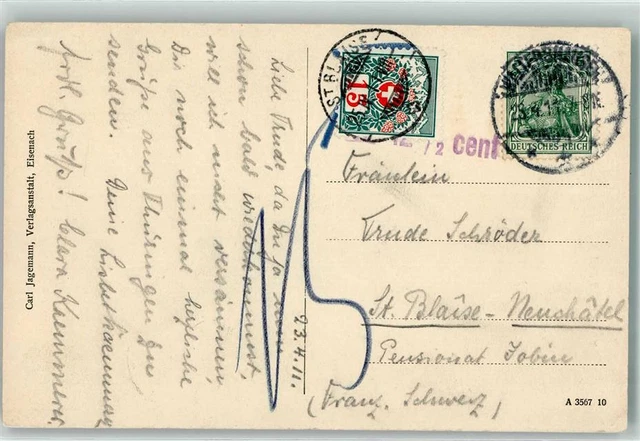 Liebe Trude, da Du ja nun
schon bald wiederkommst,
will ich nicht versäumen,
Dir noch einmal herzliche
Grüße aus Thüringen zu
senden. Deine
frdl. Gruß! Clara Kaemmerer
23.4.11.
Carl Jagemann, Verlagsanstalt, Eisenach
ST BLAISE
15
12 1/2 cent
DEUTSCHES REICH
Fräulein
Trude Schröder
St. Blaise - Neuchâtel
Pensionat Jobin
(Franz. Schweiz)
A 3567 10